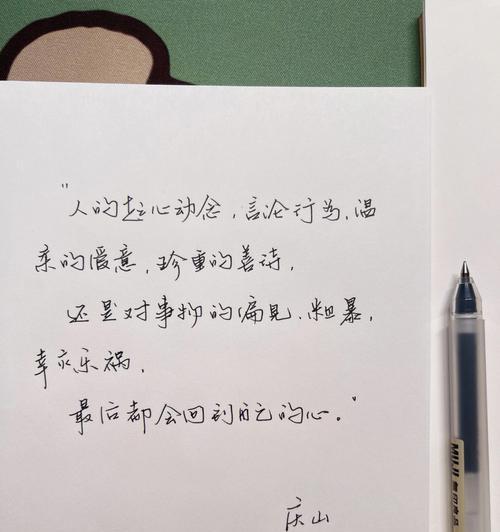 "人的起心动念，言论行为，温
柔的爱意，珍重的善待，
还是对事物的偏见、粗暴，
幸灾乐祸，
最后都会回到自己的心。"
庆山
MUJI